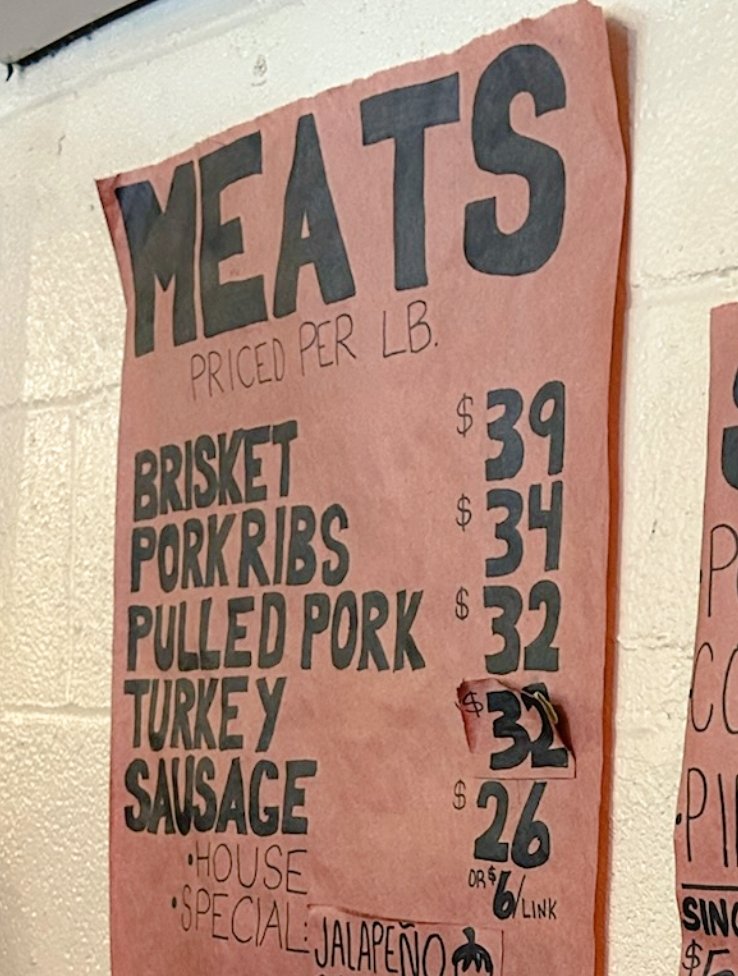 MEATS
PRICED PER LB.
BRISKET $39
PORK RIBS $34
PULLED PORK $32
TURKEY $32
SAUSAGE $26
OR $6/LINK
•HOUSE
•SPECIAL: JALAPEÑO
SING